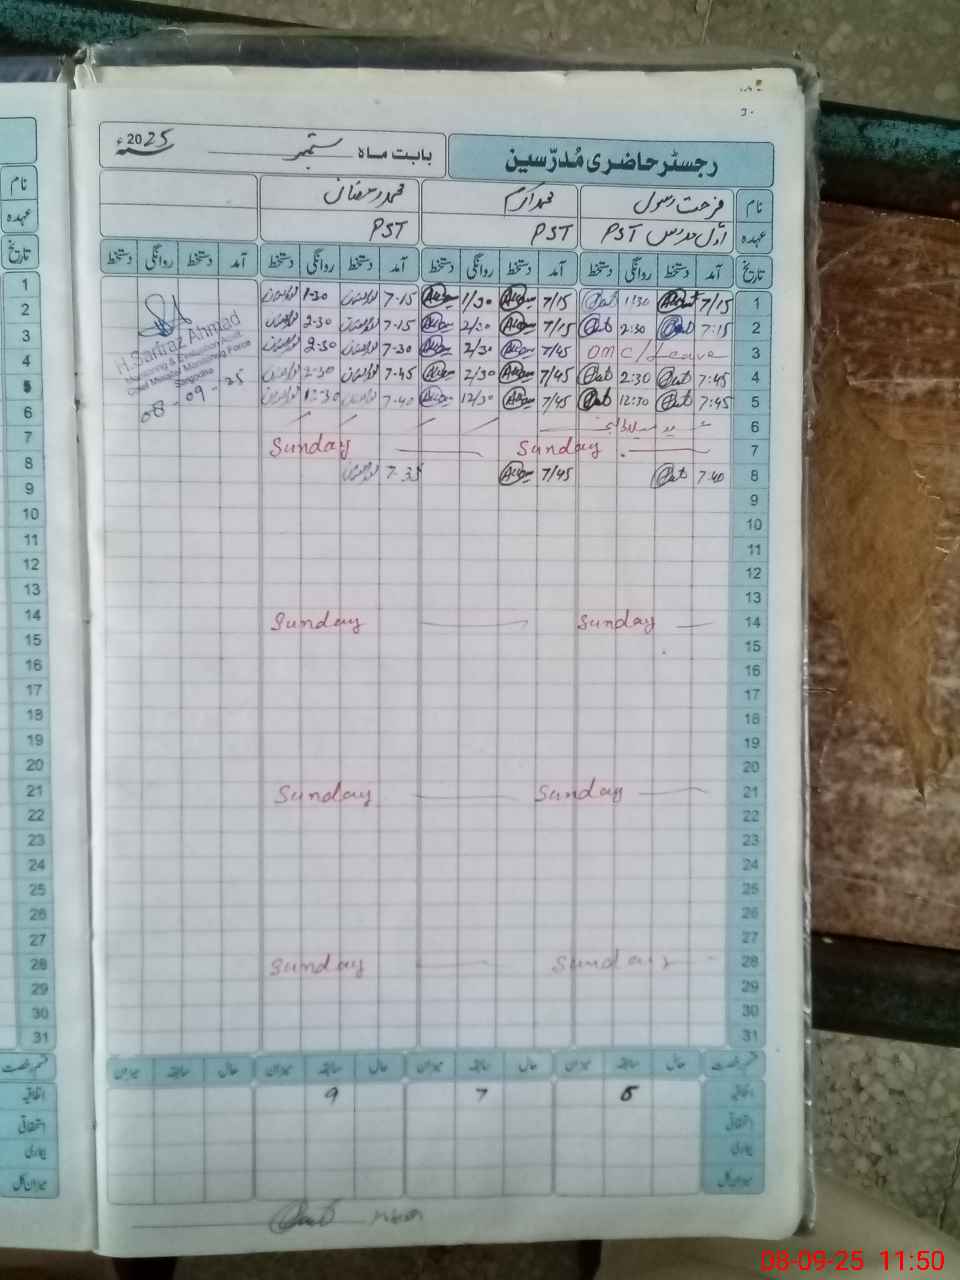 رجسٹر حاضری مُدرّسین
بابت ماہ ستمبر 2025ء
نام فرحت رسول محمد اکرم محمد رمضان
عہدہ اوّل مدرس PST PST PST
تاریخ آمد دستخط روانگی دستخط آمد دستخط روانگی دستخط آمد دستخط روانگی دستخط آمد دستخط روانگی دستخط
1 7/15 1:30 7/15 1/30 7-15 1-30 1
2 7:15 2:30 7/15 2/30 7-15 2-30 2
3 OMC/Leave 7/45 2/30 7-30 2-30 3
4 7:45 2:30 7/45 2/30 7-45 2-30 4
5 7:45 12:30 7/45 12/30 7-40 12-30 5
6 6
7 Sunday Sunday 7
8 7:40 7/45 7-35 8
9 9
10 10
11 11
12 12
13 13
14 Sunday Sunday 14
15 15
16 16
17 17
18 18
19 19
20 20
21 Sunday Sunday 21
22 22
23 23
24 24
25 25
26 26
27 27
28 Sunday Sunday 28
29 29
30 30
31 31
H.Sarfraz Ahmad
Monitoring & Evaluation
Chief Minister Monitoring Force
Sargodha
08-09-25
حال سابقہ میزان حال سابقہ میزان حال سابقہ میزان حال سابقہ میزان
اتفاقیہ 7 9
استحقاقی
بیماری
میزان کل
نام
عہدہ
تاریخ
08-09-25 11:50